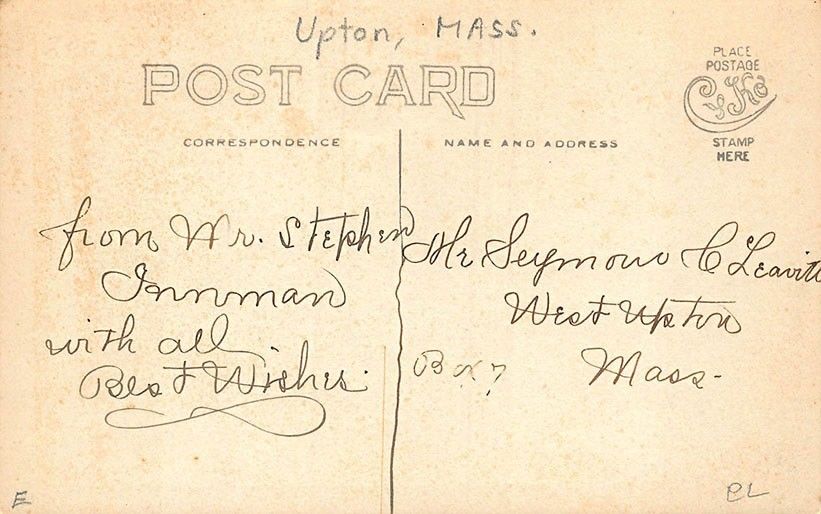 Upton, MASS.
POST CARD
PLACE
POSTAGE
CyKo
STAMP
HERE
CORRESPONDENCE
NAME AND ADDRESS
from Wr. Stephen
Innman
with all
Best Wishes.
Mr Seymour C Leavitt
West Upton
Box 7
Mass-
E
CL